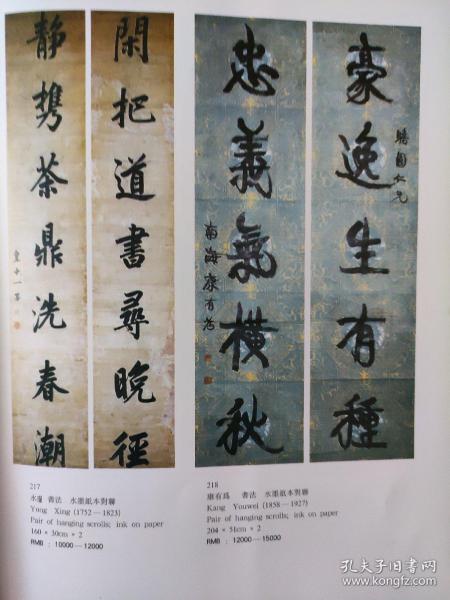 閑把道書尋晚徑
静攜茶鼎洗春潮
皇十一子
豪逸生有種
仁兄
忠義氣橫秋
南海康有為
217
永瑆 書法 水墨紙本對聯
Yong Xing (1752—1823)
Pair of hanging scrolls; ink on paper
160 × 30cm × 2
RMB : 10000—12000
218
康有爲 書法 水墨紙本對聯
Kang Youwei (1858—1927)
Pair of hanging scrolls; ink on paper
204 × 51cm × 2
RMB : 12000—15000
孔夫子旧书网
www.kongfz.com